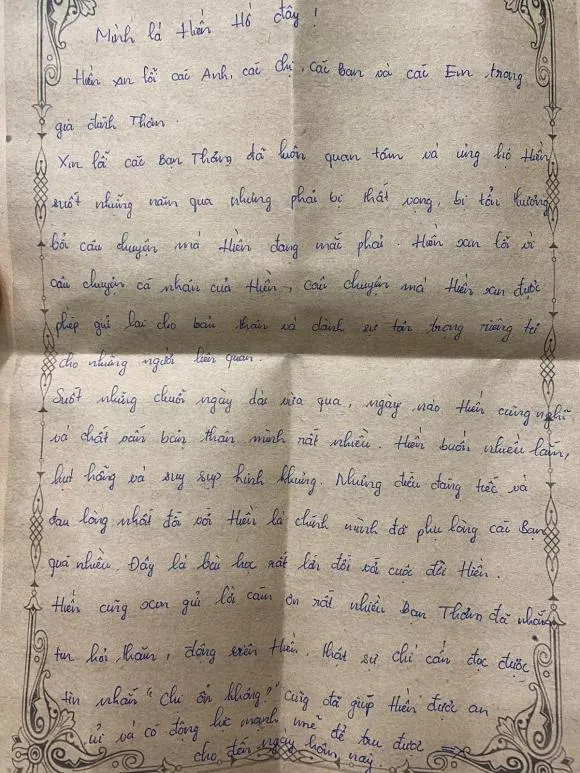 Mình là Hiền Hồ đây !
Hiền xin lỗi các Anh, các chị, các Bạn và các Em trong
gia đình Thơm.
Xin lỗi các Bạn Thơm đã luôn quan tâm và ủng hộ Hiền
suốt những năm qua nhưng phải bị thất vọng, bị tổn thương
bởi câu chuyện mà Hiền đang mắc phải. Hiền xin lỗi vì
câu chuyện cá nhân của Hiền, câu chuyện mà Hiền xin được
phép giữ lại cho bản thân và dành sự tôn trọng riêng tư
cho những người liên quan.
Suốt những chuỗi ngày dài vừa qua, ngày nào Hiền cũng nghĩ
và chất vấn bản thân mình rất nhiều. Hiền buồn nhiều lắm,
hụt hẫng và suy sụp kinh khủng. Nhưng điều đáng tiếc và
đau lòng nhất đối với Hiền là chính mình đã phụ lòng các Bạn
quá nhiều. Đây là bài học rất lớn đối với cuộc đời Hiền.
Hiền cũng xin gửi lời cảm ơn rất nhiều Bạn Thơm đã nhắn
tin hỏi thăm, động viên Hiền. Thật sự chỉ cần đọc được
tin nhắn "chị ổn không?" cũng đã giúp Hiền được an
ủi và có động lực mạnh mẽ để trụ được
cho đến ngày hôm nay.